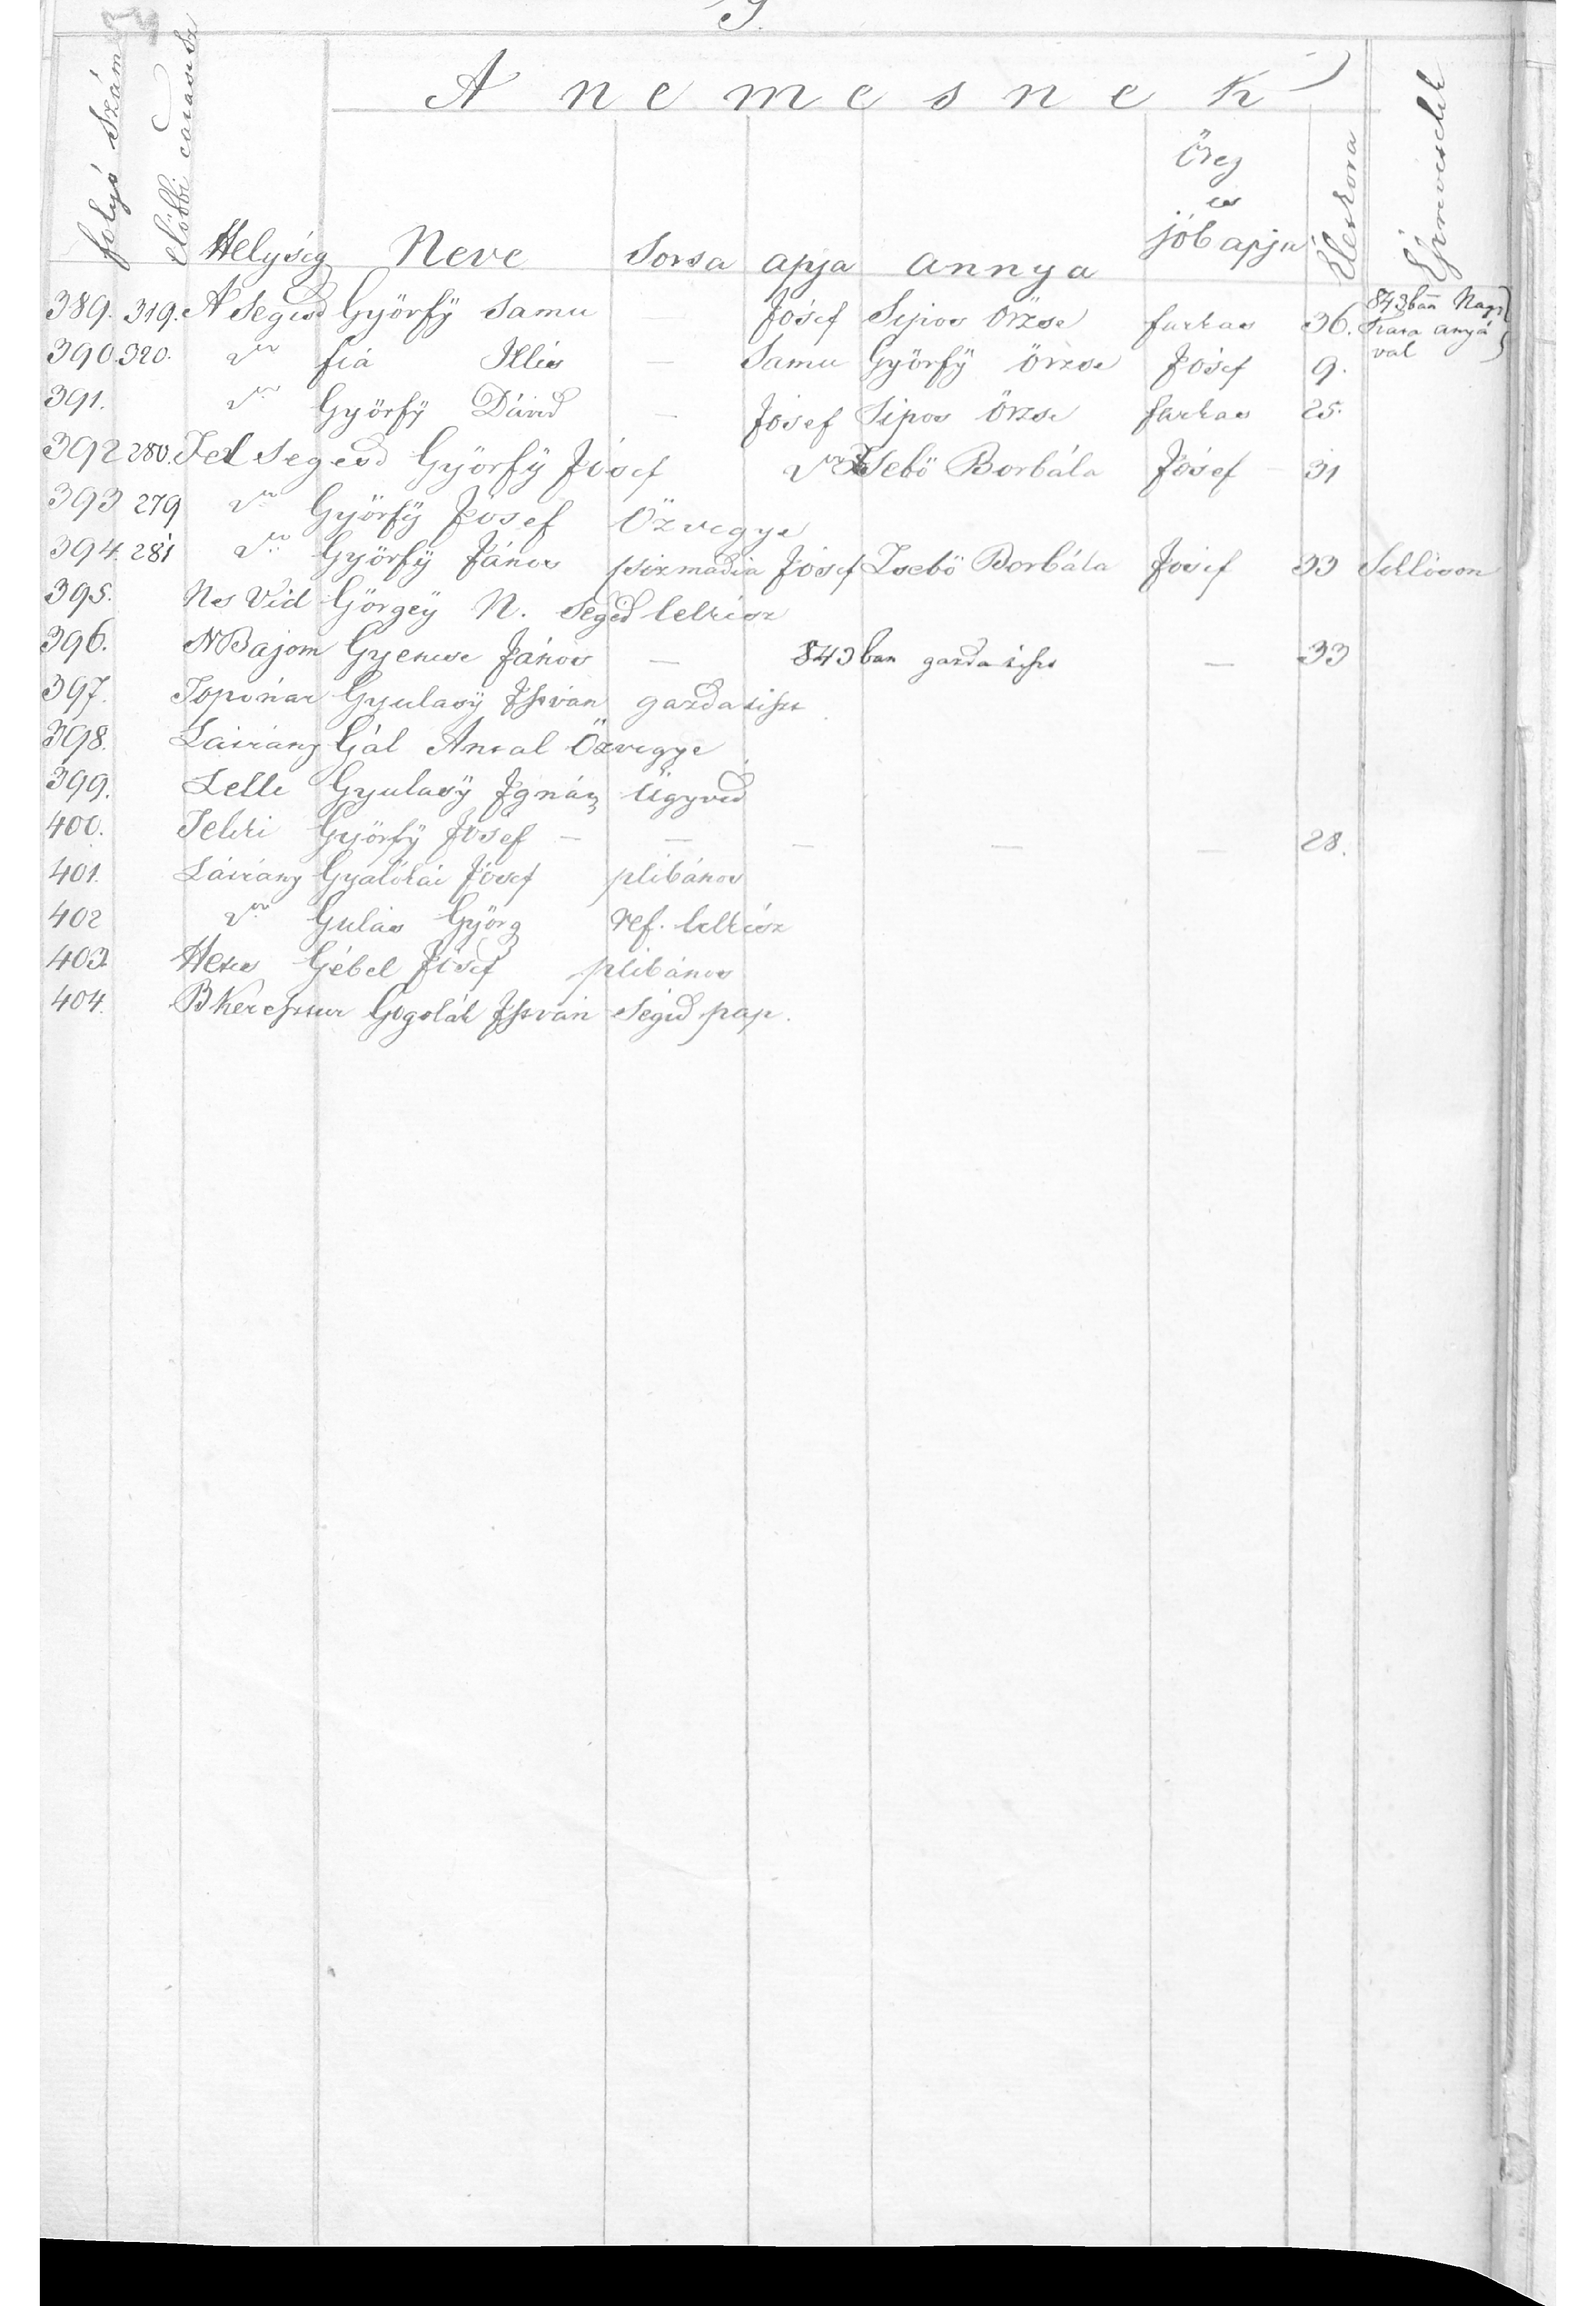 A nemesnek
folyó Szám előbbi Helység Neve Sorsa apja annya Öreg és jób apja Életkora Észrevételek
389. 319. A Segesd Györfÿ Samu — Jósef Sipos Örzse farkas 36. 843ban Nagy anyá val
390. 320. fia Illés — Samu Györfÿ Örzse Jósef 9.
391. Györfÿ Dávid — Jósef Sipos Örzse farkas 25.
392 280. Fel Segesd Györfÿ Jósef Borbála Jósef 31
393 279 Györfÿ Jósef Özvegye
394. 281 Györfÿ János csizmadia Jósef Borbála Jósef 33
395. Nes Vid Görgeÿ N. Segéd lelkész
396. N Bajom Gyenese János — 843ban gazda tiszt — 33
397. Toponár Gyulasÿ István gazda tiszt
398. Látrány Gál Antal Özvegye
399. Lelle Gyulasÿ Ignátz Ügyvéd
400. Telki Györfÿ Jósef — — — — — 28.
401. Látrány Gyalókai Jósef plébános
402 Gulás Györg ref. lelkész
403. Hetes Gébel Jósef plébános
404. B Keresztur Gogolák István Segéd pap.